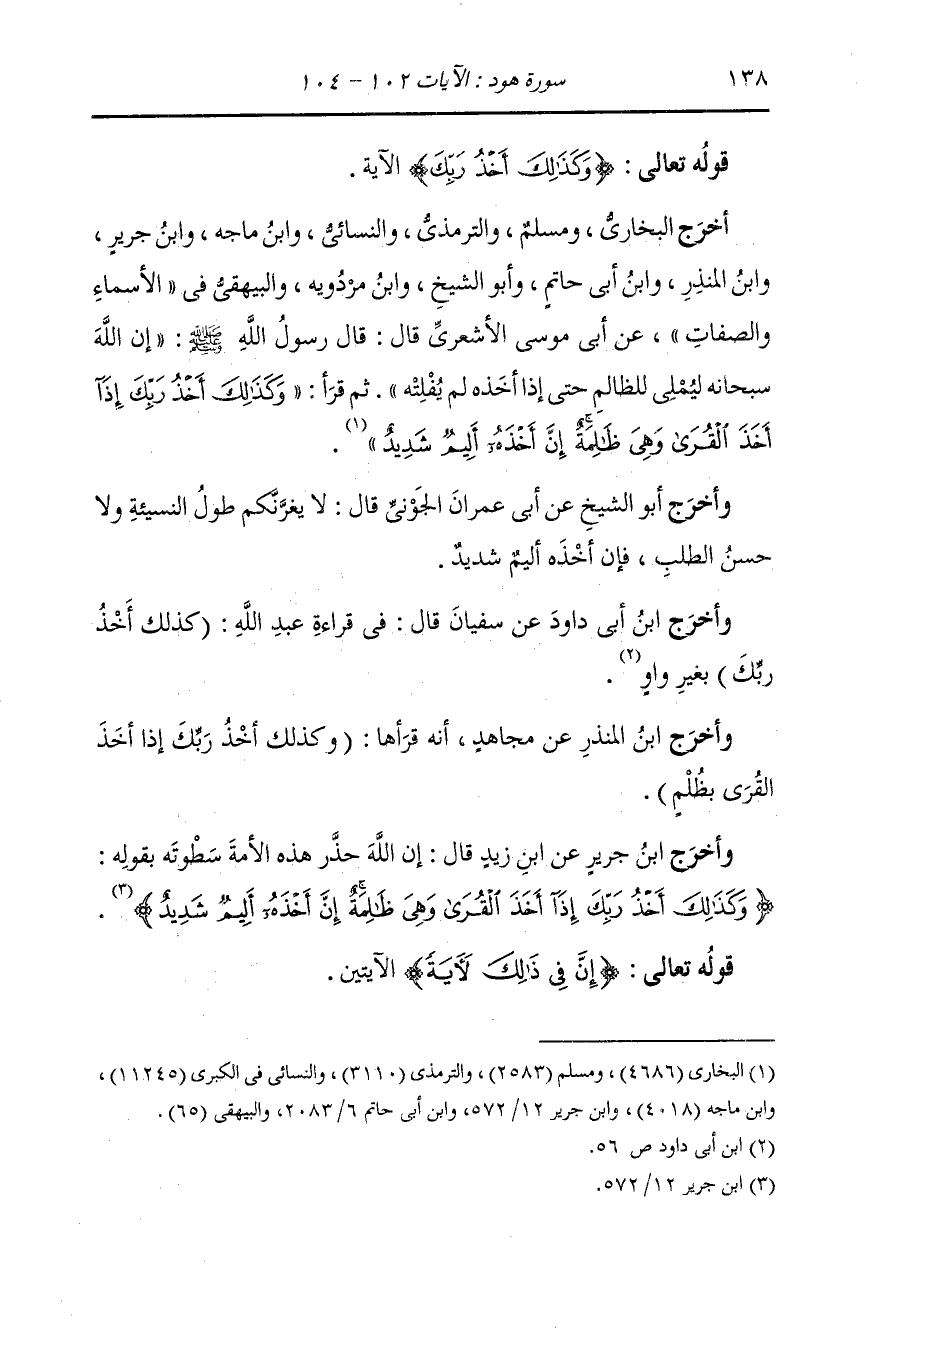 ١٣٨ سورة هود : الآيات ١٠٢ – ١٠٤
قولُه تعالى : ﴿وَكَذَٰلِكَ أَخۡذُ رَبِّكَ﴾ الآية .
أخرَج البخارىُّ ، ومسلمٌ ، والترمذىُّ ، والنسائىُّ ، وابنُ ماجه ، وابنُ جريرٍ ،
وابنُ المنذِرِ ، وابنُ أبى حاتمٍ ، وأبو الشيخِ ، وابنُ مرْدُويه ، والبيهقىُّ فى « الأسماءِ
والصفاتِ » ، عن أبى موسى الأشعرىِّ قال : قال رسولُ اللَّهِ ﷺ : « إن اللَّهَ
سبحانه ليُمْلِى للظالمِ حتى إذا أخَذه لم يُفْلِتْه » . ثم قرَأ : « وَكَذَٰلِكَ أَخۡذُ رَبِّكَ إِذَآ
أَخَذَ ٱلۡقُرَىٰ وَهِىَ ظَٰلِمَةٌۚ إِنَّ أَخۡذَهُۥٓ أَلِيمٌ شَدِيدٌ »(١) .
وأخرَج أبو الشيخِ عن أبى عمرانَ الجَوْنىِّ قال : لا يغرَّنَّكم طولُ النسيئةِ ولا
حسنُ الطلبِ ، فإن أخْذَه أليمٌ شديدٌ .
وأخرَج ابنُ أبى داودَ عن سفيانَ قال : فى قراءةِ عبدِ اللَّهِ : (كذلك أَخْذُ
ربِّكَ) بغيرِ واوٍ(٢) .
وأخرَج ابنُ المنذرِ عن مجاهدٍ ، أنه قرَأها : (وكذلك أخْذُ رَبِّكَ إذا أخَذَ
القُرَى بظُلْمٍ) .
وأخرَج ابنُ جريرٍ عن ابنِ زيدٍ قال : إن اللَّهَ حذَّر هذه الأمةَ سَطْوتَه بقولِه :
﴿وَكَذَٰلِكَ أَخۡذُ رَبِّكَ إِذَآ أَخَذَ ٱلۡقُرَىٰ وَهِىَ ظَٰلِمَةٌۚ إِنَّ أَخۡذَهُۥٓ أَلِيمٌ شَدِيدٌ﴾(٣) .
قولُه تعالى : ﴿إِنَّ فِى ذَٰلِكَ لَأٓيَةً﴾ الآيتين .
(١) البخارى (٤٦٨٦) ، ومسلم (٢٥٨٣) ، والترمذى (٣١١٠) ، والنسائى فى الكبرى (١١٢٤٥) ،
وابن ماجه (٤٠١٨) ، وابن جرير ١٢/ ٥٧٢، وابن أبى حاتم ٦/ ٢٠٨٣، والبيهقى (٦٥) .
(٢) ابن أبى داود ص ٥٦.
(٣) ابن جرير ١٢/ ٥٧٢.